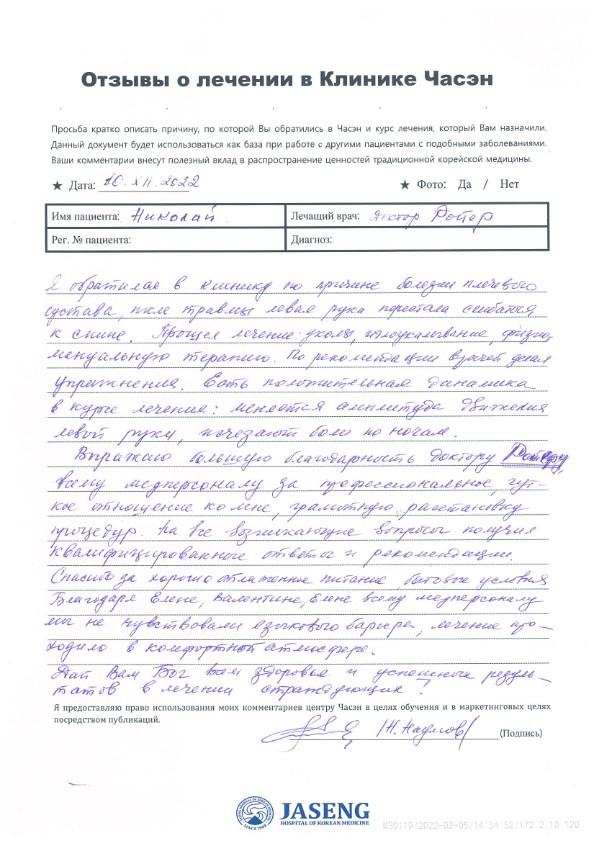 Отзывы о лечении в Клинике Часэн
Просьба кратко описать причину, по которой Вы обратились в Часэн и курс лечения, который Вам назначили.
Данный документ будет использоваться как база при работе с другими пациентами с подобными заболеваниями.
Ваши комментарии внесут полезный вклад в распространение ценностей традиционной корейской медицины.
★ Дата: 10. XII. 2022 ★ Фото: Да / Нет
Имя пациента: Николай Лечащий врач: доктор
Рег. № пациента: Диагноз:
Я обратился в клинику по причине болезни плечевого
сустава, после травмы левая рука перестала сгибаться
к спине. Прошел лечение: уколы, иглоукалывание, физио,
мануальную терапию. По рекомендации врачей делал
упражнения. Есть положительная динамика
в курсе лечения: меняется амплитуда движения
левой руки, исчезают боли по ночам.
Выражаю большую благодарность доктору
всему медперсоналу за профессиональное, чут-
кое отношение ко мне, грамотную расстановку
процедур. На все возникающие вопросы получил
квалифицированные ответы и рекомендации.
Спасибо за хорошо отлаженное питание бытовые условия
Благодаря Елене, Валентине, Елене всему медперсоналу
мы не чувствовали языкового барьера, лечение про-
ходило в комфортной атмосфере.
Дай Вам Бог Вам здоровья и успешных резуль-
татов в лечении страждующих!
Я предоставляю право использования моих комментариев центру Часэн в целях обучения и в маркетинговых целях
посредством публикаций.
(Н. Наумов) (Подпись)
JASENG
HOSPITAL OF KOREAN MEDICINE
M30119/2022-02-05/14:34:52/172.2.10.120